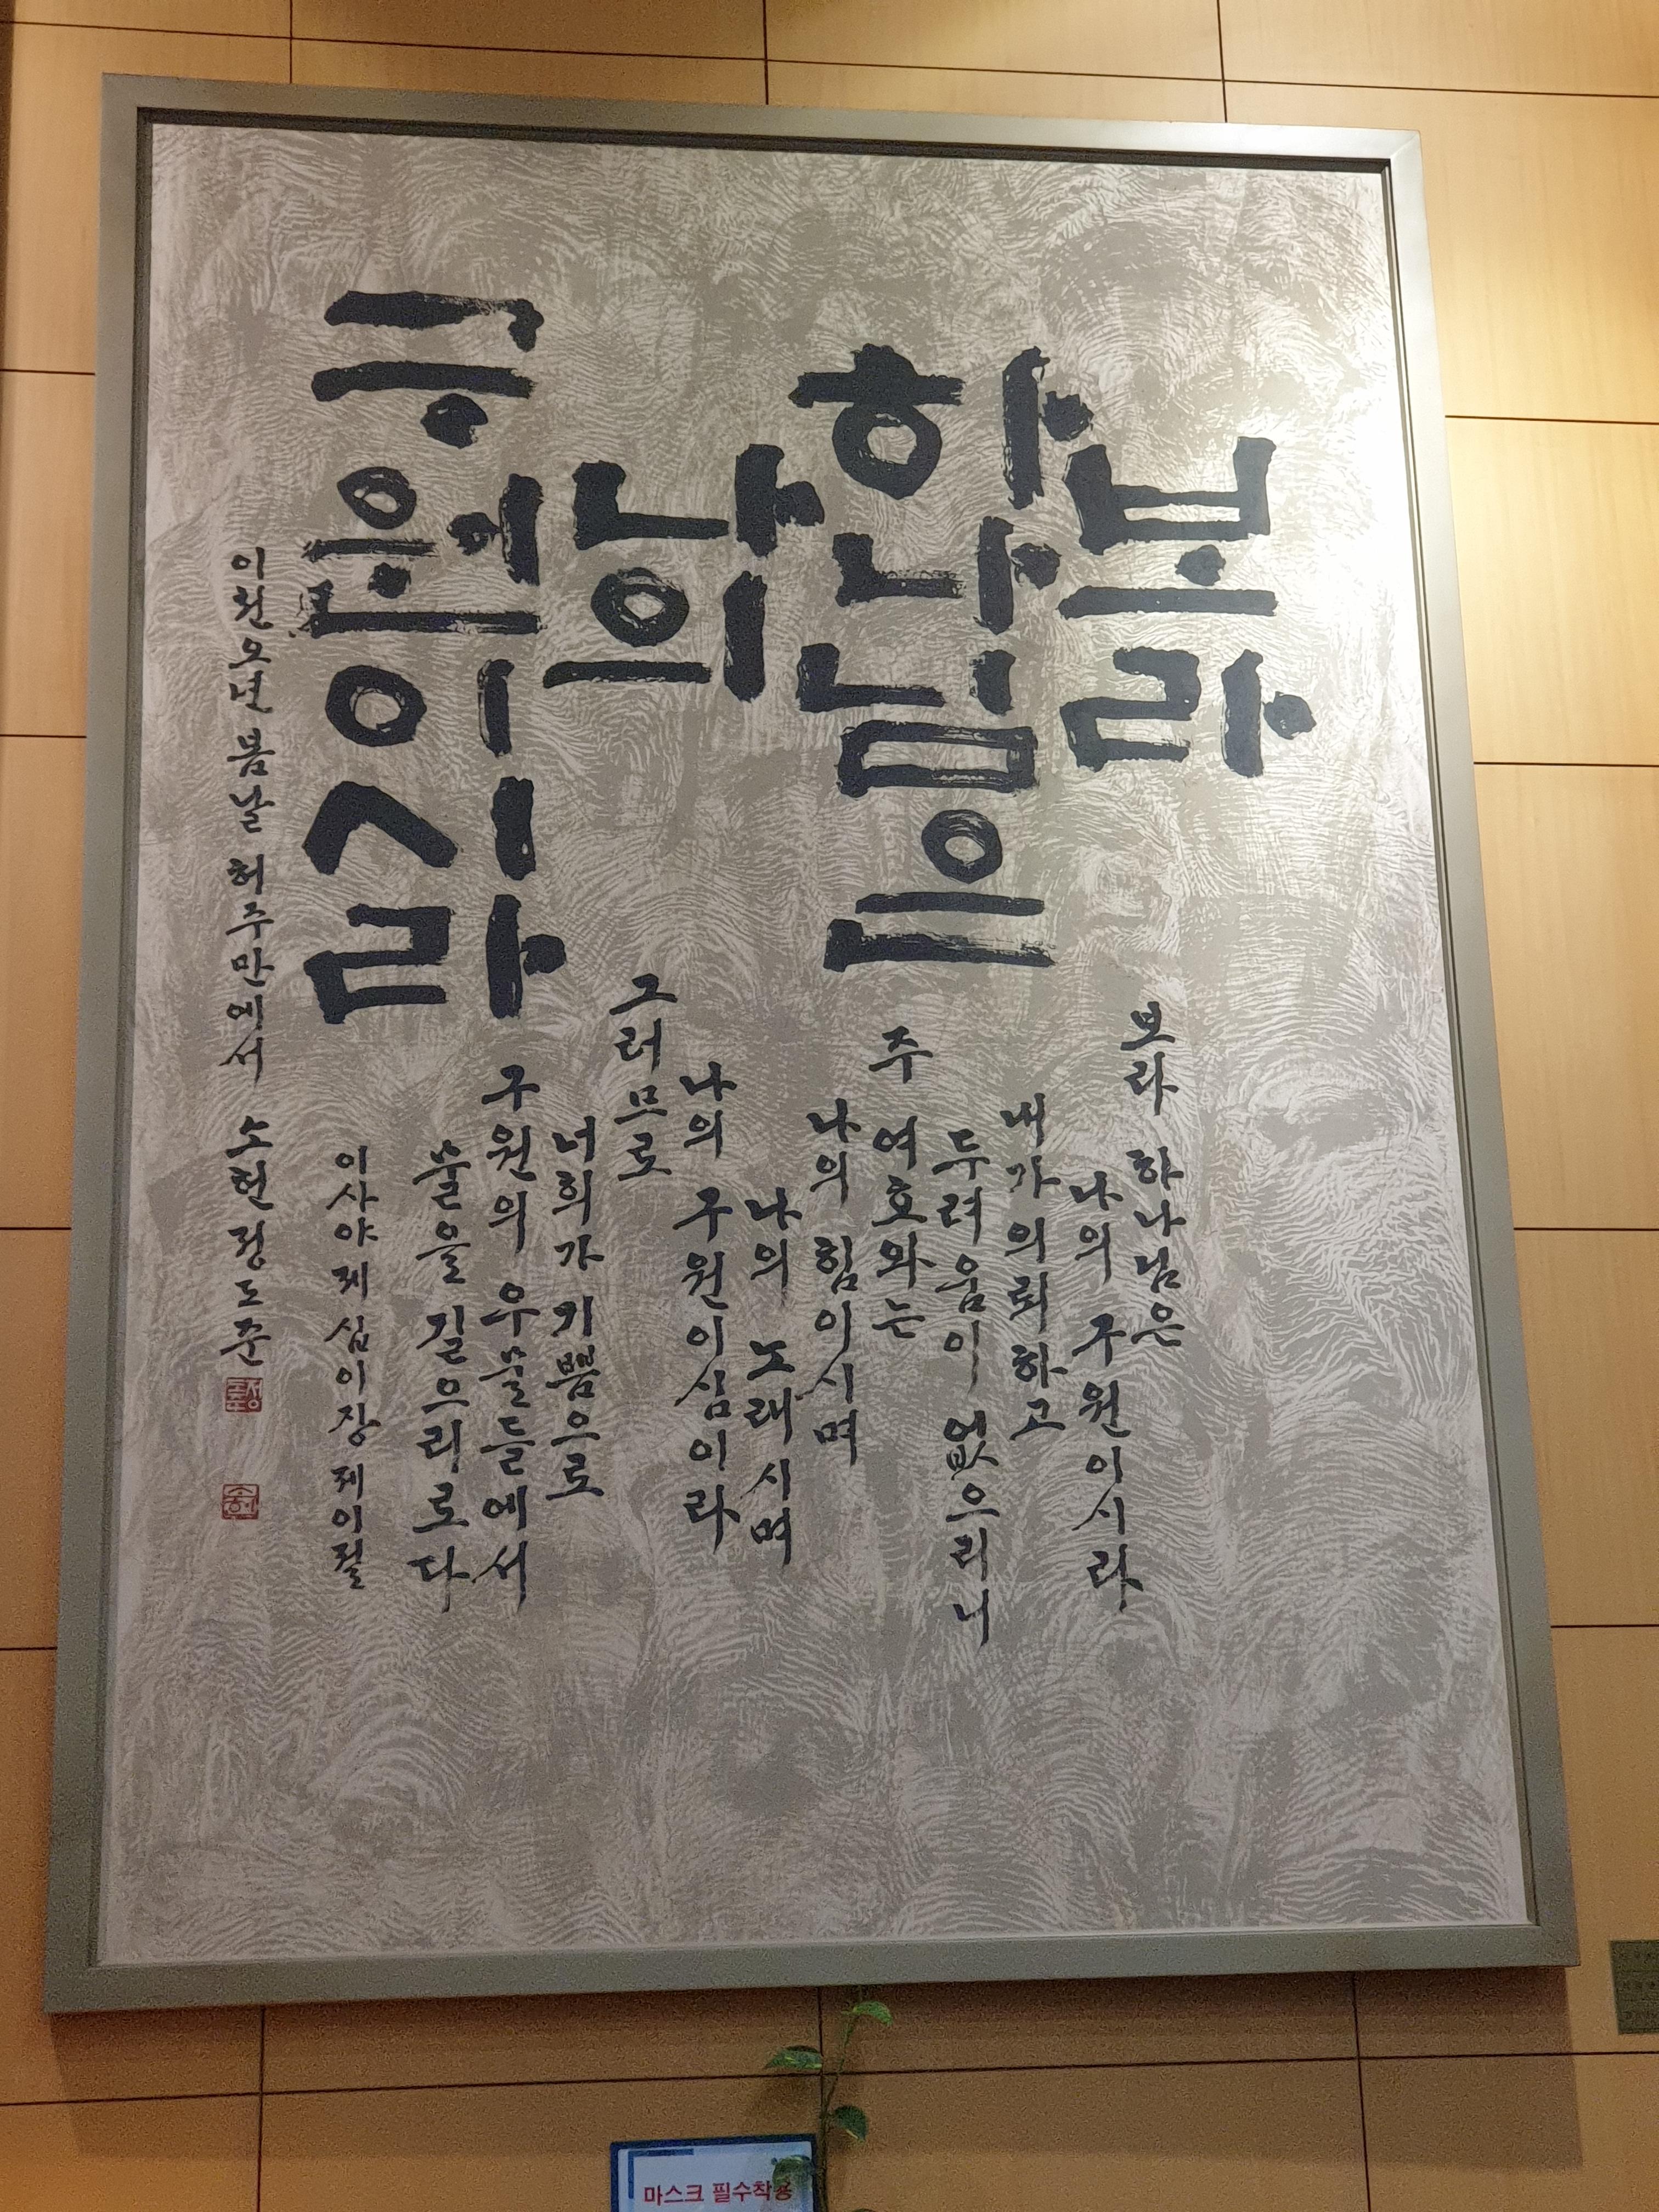 보라
하나님은
나의
구원이시라
보라 하나님은
나의 구원이시라
내가 의뢰하고
두려움이 없으리니
주 여호와는
나의 힘이시며
나의 노래시며
나의 구원이심이라
그러므로
너희가 기쁨으로
구원의 우물들에서
물을 길으리로다
이사야 제십이장 제이절
이천오년 봄날 허주만에서 소헌 정도준
마스크 필수착용